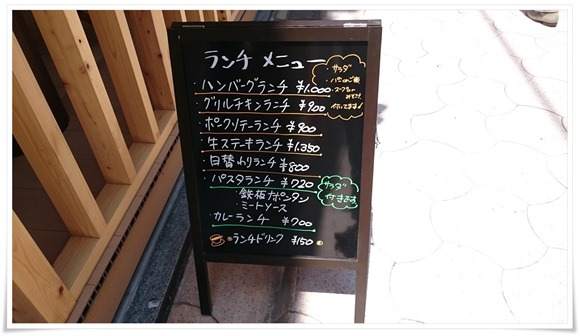 ランチ メニュー
・ハンバーグランチ ¥1,000
・グリルチキンランチ ¥900
・ポークソテーランチ ¥900
・牛ステーキランチ ¥1,350
・日替わりランチ ¥800
・パスタランチ ¥720
・鉄板ナポリタン
・ミートソース
・カレーランチ ¥700
ランチドリンク ¥150
サラダ
付いてます
サラダ
付きます